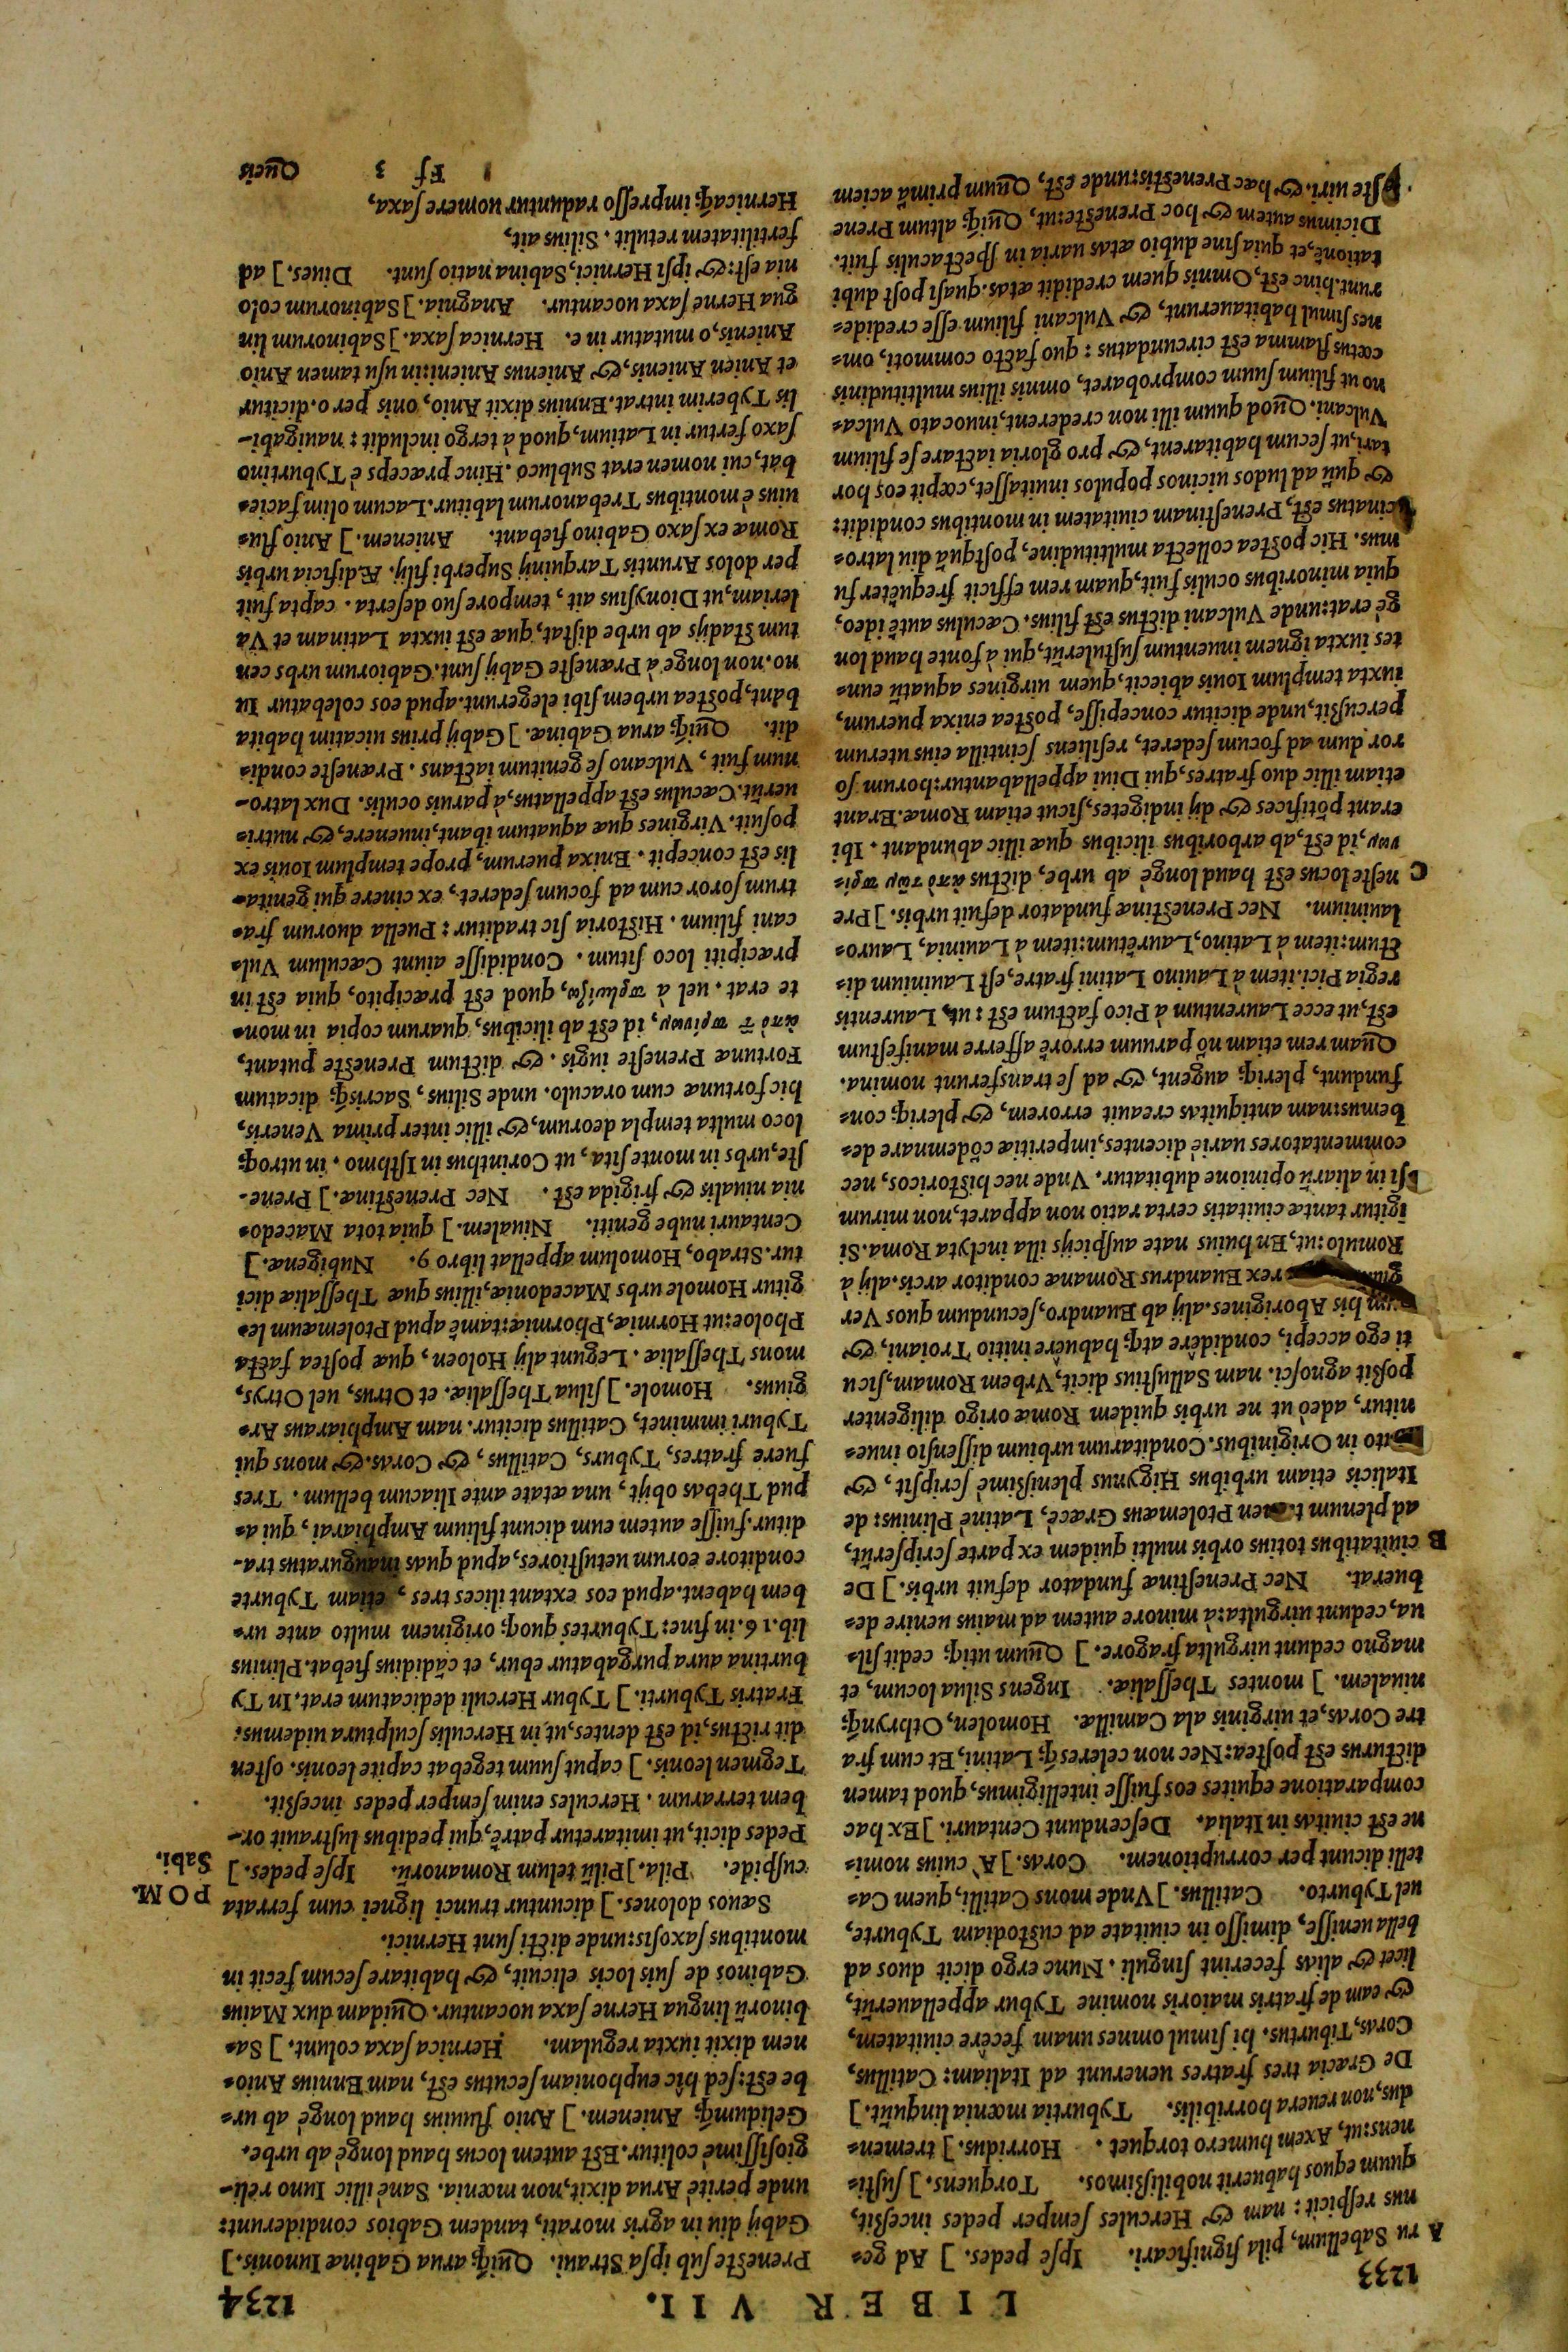 1233
LIBER VII.
1234
A ru Sabellum, pila significari. Ipse pedes.] Ad ge=
nus respicit: nam & Hercules semper pedes inceßit,
quum equos habuerit nobilißimos. Torquens.] susti=
nens:ut, Axem humero torquet. Horridus.] tremen=
dus, non reuera horribilis. Tyburtia mœnia linquũt.]
De Græcia tres fratres uenerunt ad Italiam: Catillus,
Coras, Tiburtus. hi simul omnes unam fecère ciuitatem,
& eam de fratris maioris nomine Tybur appellauerũt,
licet & alias fecerint singuli. Nunc ergo dicit duos ad
bella uenisse, dimisso in ciuitate ad custodiam Tyburte,
uel Tyburto. Catillus.] Vnde mons Catilli, quem Ca=
telli dicunt per corruptionem. Coras.] À cuius nomi=
ne est ciuitas in Italia. Descendunt Centauri.] Ex hac
comparatione equites eos fuisse intelligimus, quod tamen
dicturus est postea: Nec non celeresq; Latini, Et cum fra
tre Coras, et uirginis ala Camillæ. Homolen, Othrynq;
niualem.] montes Thessaliæ. Ingens Silua locum, et
magno cedunt uirgulta fragore.] Quum utiq; cedit sil=
ua, cedunt uirgulta:a minore autem ad maius uenire de=
buerat. Nec Prenestinæ fundator defuit urbis.] De
B ciuitatibus totius orbis multi quidem ex parte scripserũt,
ad plenum tamen Ptolemæus Græcè, Latinè Plinius: de
Italicis etiam urbibus Higynus plenißimè scripsit, &
in Originibus. Conditarum urbium dissensio inue=
nitur, adeò ut ne urbis quidem Romæ origo diligenter
poßit agnosci. nam Sallustius dicit, Vrbem Romam, sicu
ti ego accepi, condidère atq; habuêre initio Troiani, &
his Aborigines. alij ab Euandro, secundum quos Ver
rex Euandrus Romanæ conditor arcis. alij à
Romulo: ut, En huius nate auspicijs illa inclyta Roma. Si
igitur tantæ ciuitatis certa ratio non apparet, non mirum
si in aliarũ opinione dubitatur. Vnde nec historicos, nec
commentatores uariè dicentes, imperitiæ cõdemnare de=
bemus: nam antiquitas creauit errorem, & pleriq; con=
fundunt, pleriq; augent, & ad se transferunt nomina.
Quam rem etiam nõ paruum errorẽ afferre manifestum
est, ut ecce Laurentum à Pico factum est: ut, Laurentis
regia Pici. item à Lauino Latini fratre, est Lauinium di=
ctum: item à Latino, Laurẽtum: item à Lauinia, Lauro=
lauinium. Nec Prenestinæ fundator defuit urbis.] Pre
C neste locus est haud longè ab urbe, dictus ἀπὸ τῶν πρί=
νων, id est, ab arboribus ilicibus quæ illic abundant. Ibi
erant põtifices & dij indigetes, sicut etiam Romæ. Erant
etiam illic duo fratres, qui Diui appellabantur: horum so
ror dum ad focum sederet, resiliens scintilla eius uterum
percußit, unde dicitur concepisse, postea enixa puerum,
iuxta templum Iouis abiecit, quem uirgines aquatũ eun=
tes iuxta ignem inuentum sustulerũt, qui à fonte haud lon
gè erat: unde Vulcani dictus est filius. Cæculus autẽ ideo,
quia minoribus oculis fuit, quam rem efficit frequẽter fu
mus. Hic postea collecta multitudine, postquã diu latro=
cinatus est, Prenestinam ciuitatem in montibus condidit:
& quũ ad ludos uicinos populos inuitasset, cœpit eos hor
tari, ut secum habitarent, & pro gloria iactare se filium
Vulcani. Quod quum illi non crederent, inuocato Vulca=
no ut filium suum comprobaret, omnis illius multitudinis
cœtus flamma est circundatus: quo facto commoti, om=
nes simul habitauerunt, & Vulcani filium esse credide=
runt. hinc est, Omnis quem credidit ætas. quasi post dubi
tationẽ, et quia sine dubio ætas uaria in spectaculis fuit.
Dicimus autem & hoc Preneste: ut, Quiq; altum Prene
ste uiri. & hæc Prenestis: unde est, Quum primã aciem
Preneste sub ipsa Straui. Quiq; arua Gabinæ Iunonis.]
Gabij diu in agris morati, tandem Gabios condiderunt:
unde peritè Arua dixit, non mœnia. Sanè illic Iuno reli-
giosissimè colitur. Est autem locus haud longè ab urbe.
Gelidumq; Anienem.] Anio fluuius haud longè ab ur=
be est: sed hîc euphoniam secutus est, nam Ennius Anio=
nem dixit iuxta regulam. Hernica saxa colunt.] Sa=
binorũ lingua Herne saxa uocantur. Quidam dux Maius
Gabinos de suis locis elicuit, & habitare secum fecit in
montibus saxosis: unde dicti sunt Hernici.
POM.
Sabi.
Sæuos dolones.] dicuntur trunci lignei cum ferrata
cuspide. Pila.] Pilũ telum Romanorũ. Ipse pedes.]
Pedes dicit, ut imitaretur patrẽ, qui pedibus lustrauit or-
bem terrarum. Hercules enim semper pedes inceßit.
Tegmen leonis.] caput suum tegebat capite leonis. osten
dit rictus, id est dentes, ut in Herculis sculptura uidemus.
Fratris Tyburti.] Tybur Herculi dedicatum erat. In Ty
burtina aura purgabatur ebur, et cãdidius fiebat. Plinius
lib.16. in fine: Tyburtes quoq; originem multo ante ur=
bem habent. apud eos extant ilices tres, etiam Tyburte
conditore eorum uetustiores, apud quas inauguratus tra-
ditur. fuisse autem eum dicunt filium Amphiarai, qui a=
pud Thebas obijt, una ætate ante Iliacum bellum. Tres
fuere fratres, Tyburs, Catillus, & Coras. & mons qui
Tyburi imminet, Catillus dicitur. nam Amphiaraus Ar=
giuus. Homole.] silua Thessaliæ. et Otrus, uel Otrys,
mons Thessaliæ. Legunt alij Holoen, quæ postea facta
Pholoe: ut Hormiæ, Phormiæ: tamẽ apud Ptolemæum le=
gitur Homole urbs Macedoniæ, illius quæ Thessaliæ dici
tur. Strabo, Homolum appellat libro 9. Nubigenæ.]
Centauri nube geniti. Niualem.] quia tota Macedo=
nia niualis & frigida est. Nec Prenestinæ.] Prene-
ste, urbs in monte sita, ut Corinthus in Isthmo. in utroq;
loco multa templa deorum, & illic inter prima Veneris,
hic fortunæ cum oraculo. unde Silius, Sacrisq; dicatum
Fortunæ Preneste iugis. & dictum Preneste putant,
ἀπὸ τ πρίνων, id est ab ilicibus, quarum copia in mon=
te erat. uel à πρωνίζω, quod est præcipito, quia est in
præcipiti loco situm. Condidisse aiunt Cæculum Vul=
cani filium. Historia sic traditur: Puella duorum fra=
trum soror cum ad focum sederet, ex cinere qui genita=
lis est concepit. Enixa puerum, prope templum Iouis ex
posuit. Virgines quæ aquatum ibant, inuenere, & nutri=
uerũt. Cæculus est appellatus, à paruis oculis. Dux latro-
num fuit, Vulcano se genitum iactans. Præneste condi=
dit. Quiq; arua Gabinæ.] Gabij prius uicatim habita
bant, postea urbem sibi elegerunt. apud eos colebatur Iu
no. non longe à Præneste Gabij sunt. Gabiorum urbs cen
tum stadijs ab urbe distat, quæ est iuxta Latinam et Va
leriam, ut Dionysius ait, tempore suo deserta. capta fuit
per dolos Aruntis Tarquinij Superbi filij. Ædificia urbis
Romæ ex saxo Gabino fiebant. Anienem.] Anio flu=
uius è montibus Trebanorum labitur. Lacum olim facie=
bat, cui nomen erat Subluco. Hinc præceps è Tyburtino
saxo fertur in Latium, quod à tergo includit: nauigabi-
lis Tyberim intrat. Ennius dixit Anio, onis per o. dicitur
et Anien Anienis, & Anienus Anieni: in usu tamen Anio
Anienis, o mutatur in e. Hernica saxa.] Sabinorum lin
gua Herne saxa uocantur. Anagnia.] Sabinorum colo
nia est: & ipsi Hernici, Sabina natio sunt. Diues.] ad
fertilitatem retulit. Silius ait,
Hernicaq; impresso raduntur uomere saxa,
Ff 3
Queis